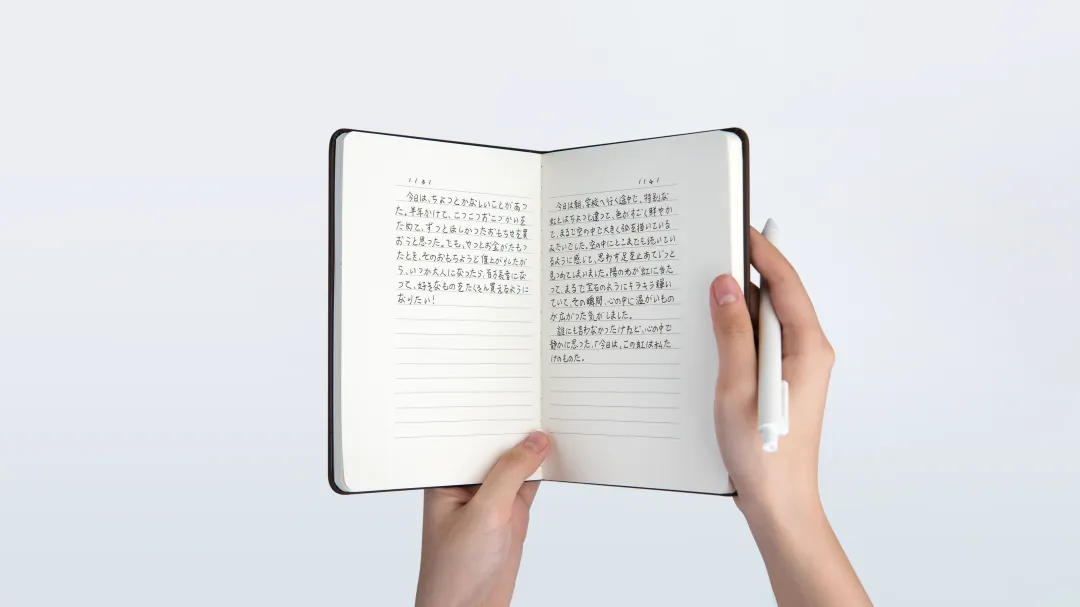 1131
今日は、ちょっとかなしいことがあっ
た。半年かけて、こつこつおこづかいを
ためて、ずっとほしかったおもちゃを買
おうと思った。でも、やっとお金がたまっ
たとき、そのおもちゃうど値上がりしたが
ら、いつか大人になったら、百万長者にな
って、好きなものをたくさん買えるように
なりたい!
1141
今日は朝、学校へ行く途中で、特別な
虹とはちょっと違って、色がすごく鮮やか
で、まるで空の中で大きく弧を描いている
みたいでした。空の中にどこまでも続いてい
るように感じて、思わず足を止めてじっと
見つめてしまいました。陽の光が虹に当た
って、まるで宝石のようにキラキラ輝い
ていて、その瞬間、心の中に温かいもの
が広がった気がしました。
誰にも言わなかったけれど、心の中で
静かに思った、「今日は、この虹は私た
けのものだ。